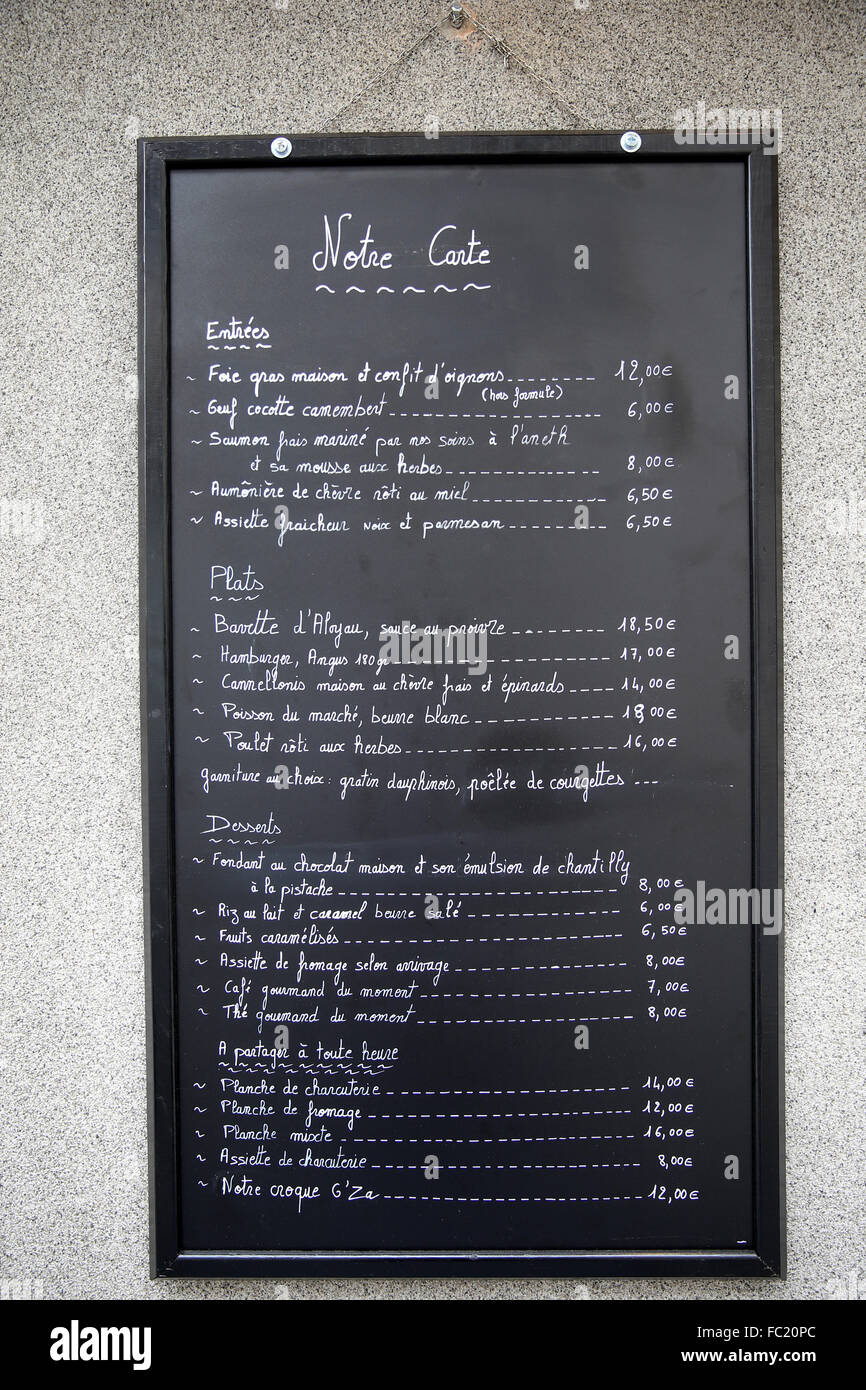 Notre Carte
Entrées
~ Foie gras maison et confit d'oignons 12,00€
(hors formule)
~ Oeuf cocotte camembert 6,00€
~ Saumon frais mariné par nos soins à l'aneth
et sa mousse aux herbes 8,00€
~ Aumônière de chèvre rôti au miel 6,50€
~ Assiette fraicheur noix et parmesan 6,50€
Plats
~ Bavette d'Aloyau, sauce au poivre 18,50€
~ Hamburger, Angus 180gr 17,00€
~ Cannellonis maison au chèvre frais et épinards 14,00€
~ Poisson du marché, beurre blanc 18,00€
~ Poulet rôti aux herbes 16,00€
garniture au choix : gratin dauphinois, poêlée de courgettes ---
Desserts
~ Fondant au chocolat maison et son émulsion de chantilly
à la pistache 8,00€
~ Riz au lait et caramel beurre salé 6,00€
~ Fruits caramélisés 6,50€
~ Assiette de fromage selon arrivage 8,00€
~ Café gourmand du moment 7,00€
~ Thé gourmand du moment 8,00€
A partager à toute heure
~ Planche de charcuterie 14,00€
~ Planche de fromage 12,00€
~ Planche mixte 16,00€
~ Assiette de charcuterie 8,00€
~ Notre croque G'Za 12,00€
alamy stock photo
FC20PC
www.alamy.com